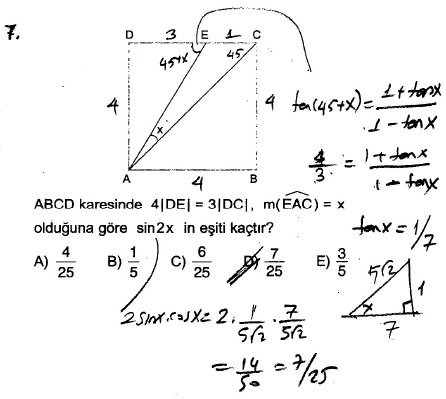 7.
D 3 E 1 C
45+x 45
4 x 4
A 4 B
tan(45+x) = 1+tanx / 1-tanx
4/3 = 1+tanx / 1-tanx
ABCD karesinde 4|DE| = 3|DC|, m(EAC) = x
olduğuna göre sin2x in eşiti kaçtır?
tanx = 1/7
A) 4/25 B) 1/5 C) 6/25 D) 7/25 E) 3/5
5√2 1
x 7
2sinx.cosx = 2. 1/5√2 . 7/5√2
= 14/50 = 7/25